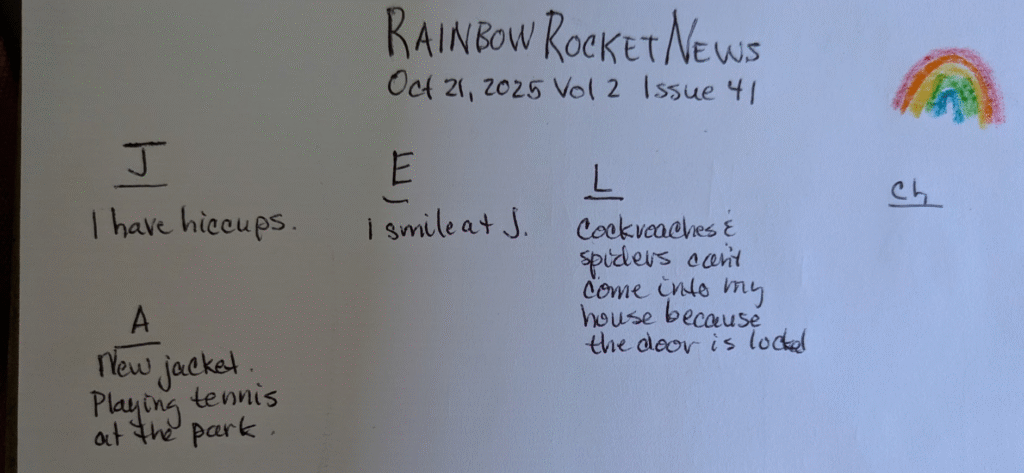 RAINBOW ROCKET NEWS
Oct 21, 2025 Vol 2 Issue 41
J
I have hiccups.
E
i smile at J.
L
Cockroaches &
spiders can't
come into my
house because
the door is locked
Ch
A
New jacket.
Playing tennis
at the park.